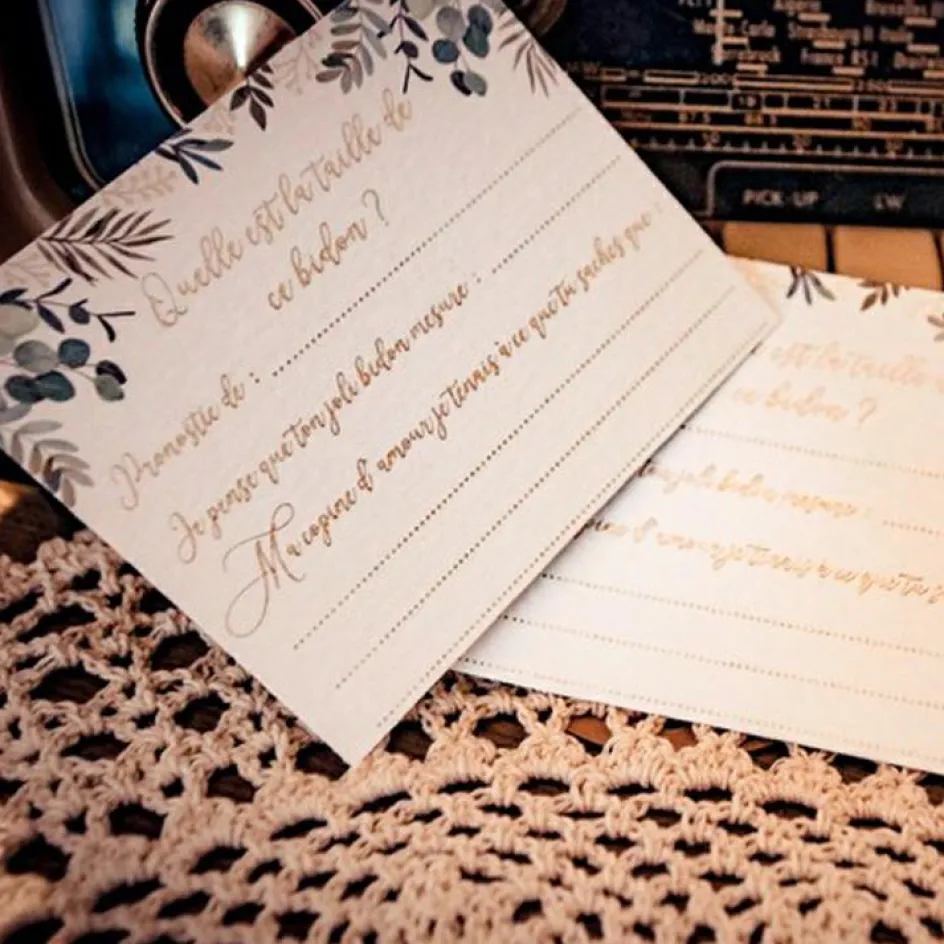 Quelle est la taille de
ce bidon ?
Pronostic de :
Je pense que ton joli bidon mesure :
Ma copine d'amour je tenais à ce que tu saches que :
est la taille
ce bidon ?
joli bidon mesure :
d'amour je tenais à ce que tu s
Monte Carlo
Strasbourg
PICK-UP
LW